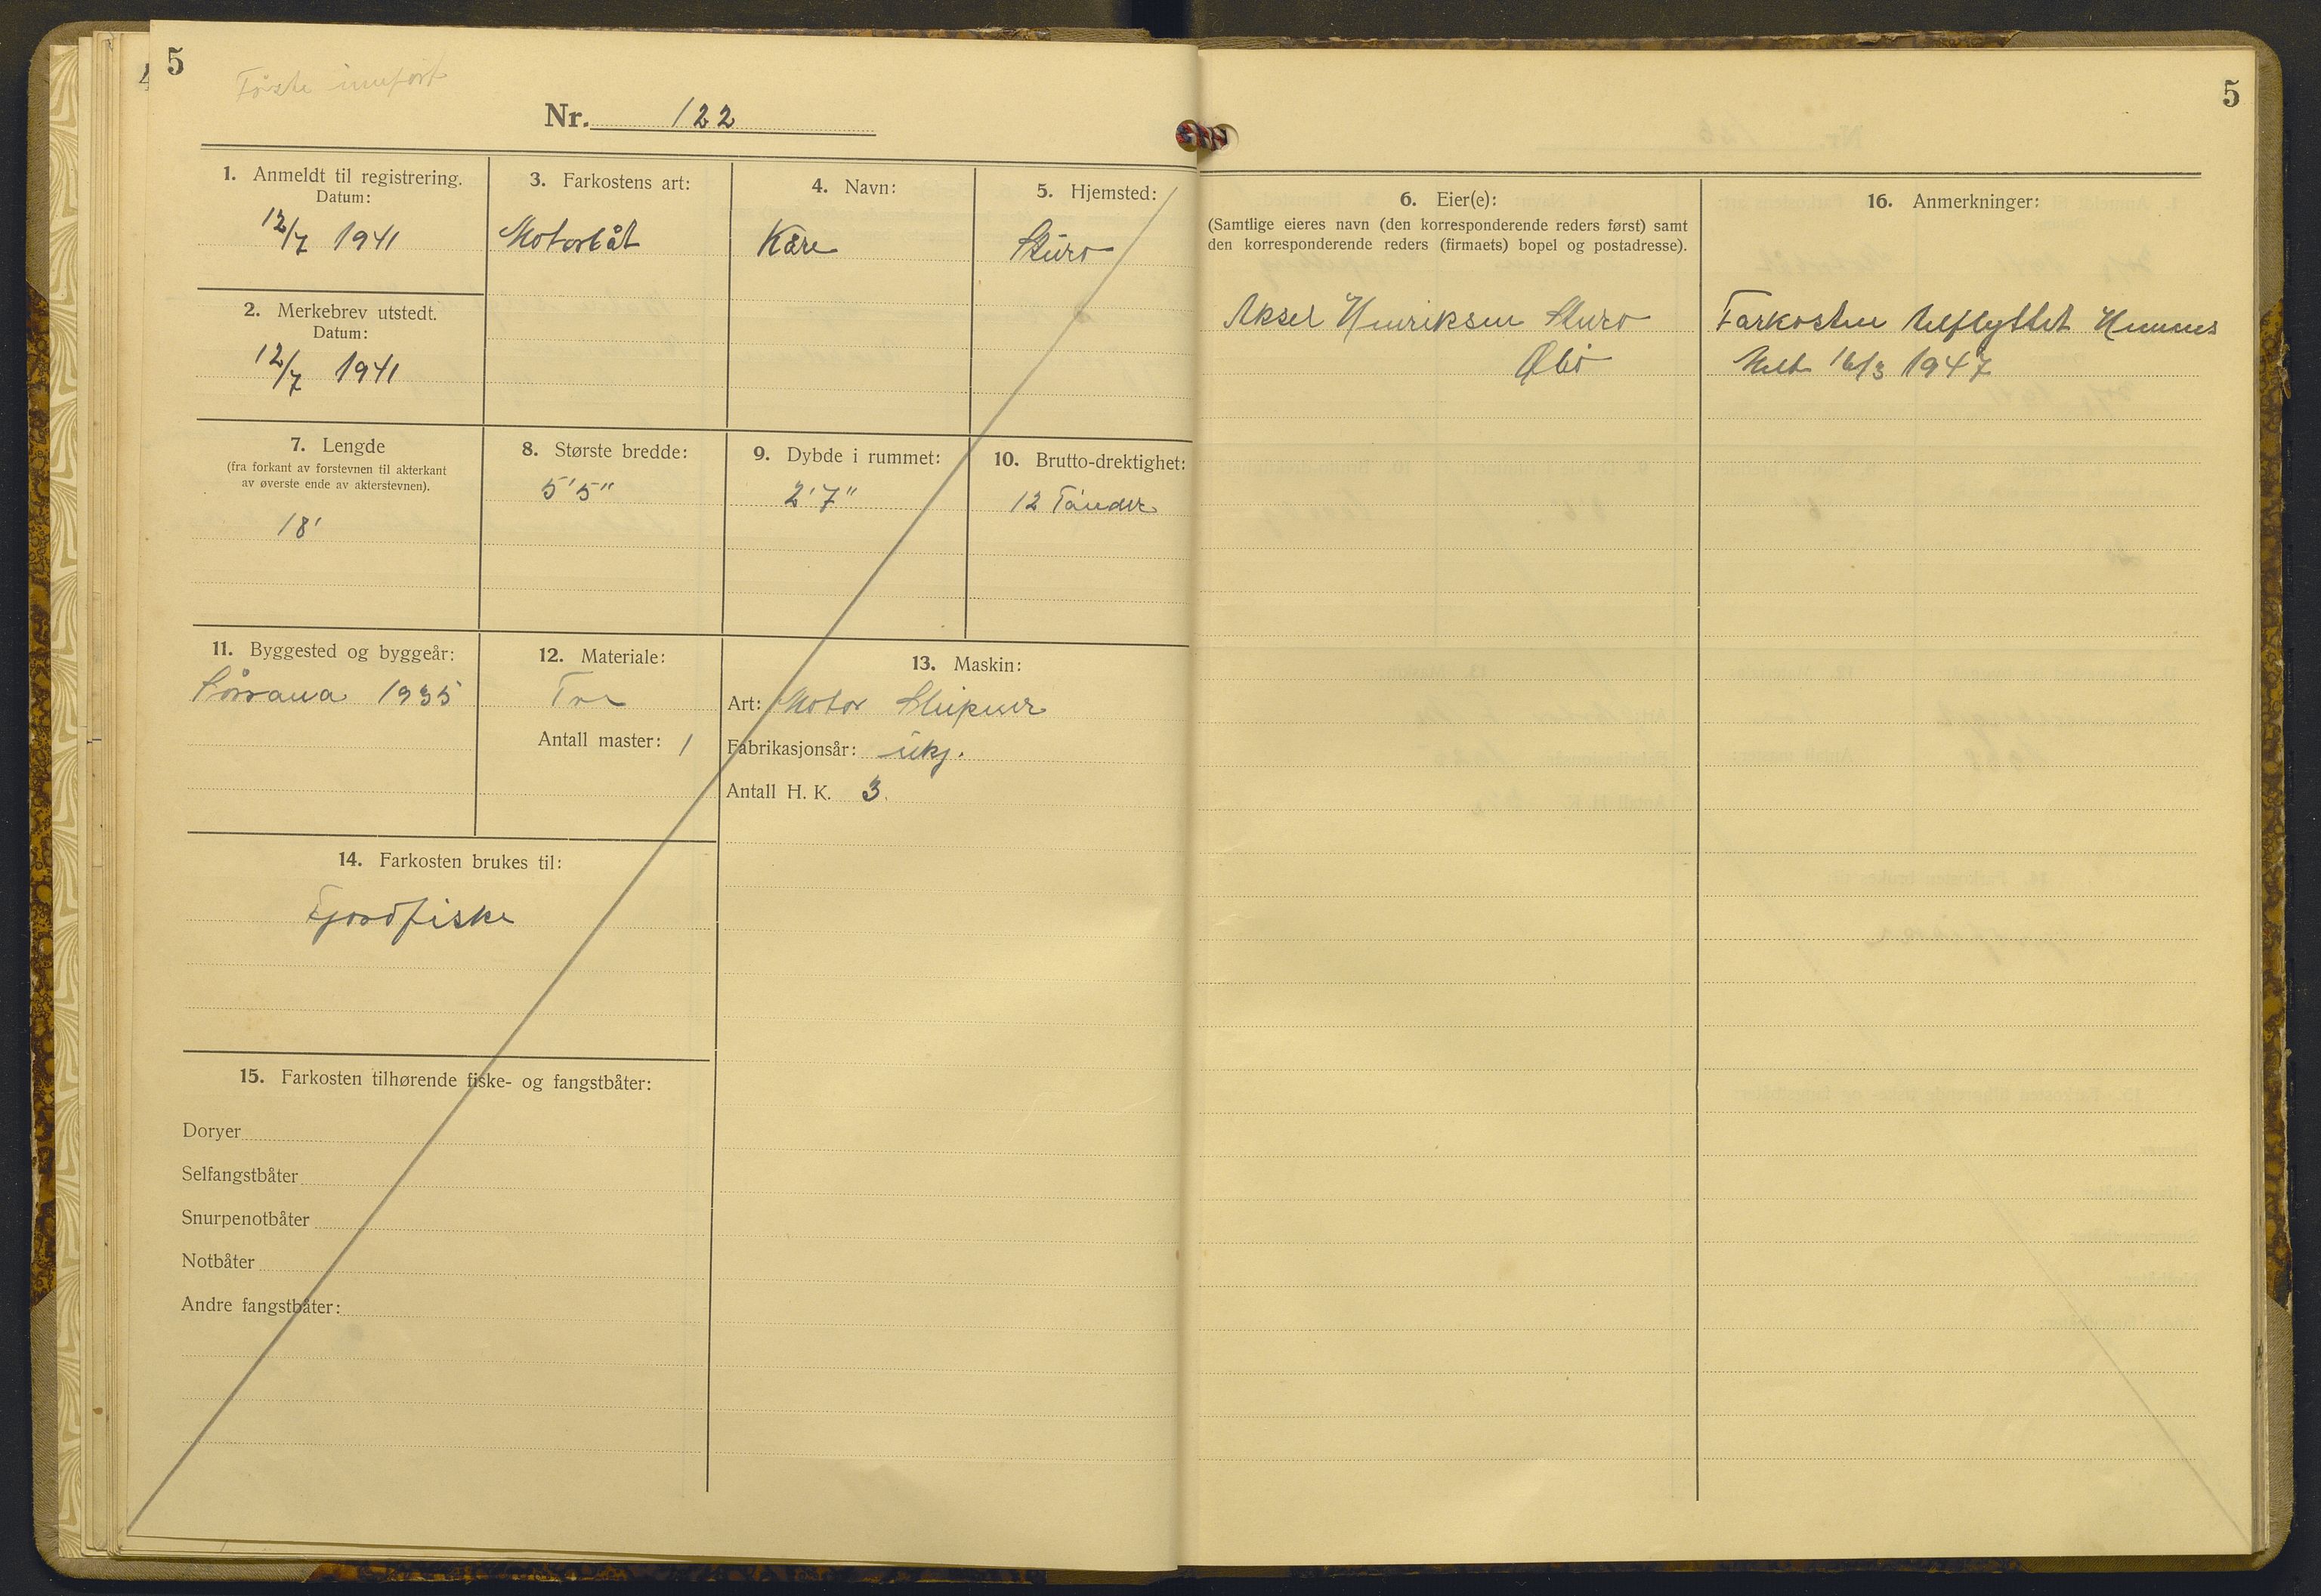 5
Nr. 122
1. Anmeldt til registrering.
Datum:
12/7 1941
2. Merkebrev utstedt.
Datum:
12/7 1941
3. Farkostens art:
Motorbåt
4. Navn:
Kåre
5. Hjemsted:
7. Lengde
(fra forkant av forstevnen til akterkant
av øverste ende av akterstevnen).
18'
8. Største bredde:
5'5"
9. Dybde i rummet:
2'7"
10. Brutto-drektighet:
12 Tønder
11. Byggested og byggeår:
Sørrana 1935
12. Materiale:
Tre
Antall master: 1
13. Maskin:
Art: Motor Sleipner
Fabrikasjonsår: ukj.
Antall H. K. 3.
14. Farkosten brukes til:
Fjordfiske
15. Farkosten tilhørende fiske- og fangstbåter:
Doryer
Selfangstbåter
Snurpenotbåter
Notbåter
Andre fangstbåter:
5
6. Eier(e):
(Samtlige eieres navn (den korresponderende reders først) samt
den korresponderende reders (firmaets) bopel og postadresse).
Aksel Henriksen
16. Anmerkninger:
Farkosten utflyttet Hemnes
16/3 1947